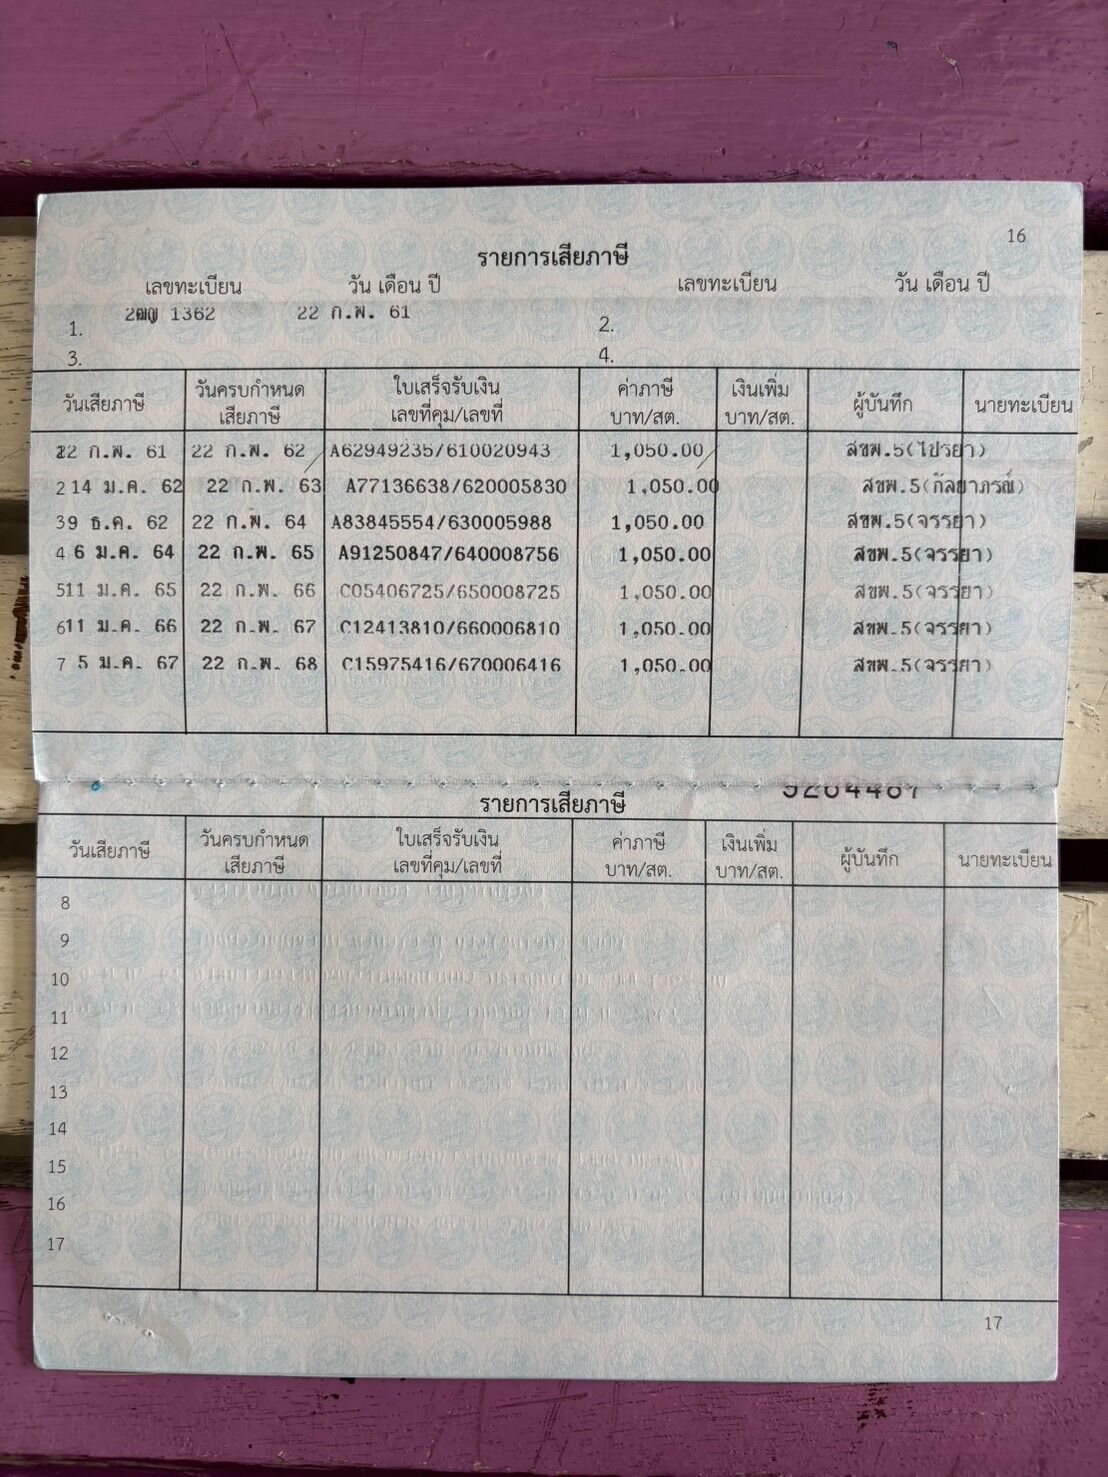 16
รายการเสียภาษี
เลขทะเบียน วัน เดือน ปี เลขทะเบียน วัน เดือน ปี
1. 2ฒญ 1362 22 ก.พ. 61 2.
3. 4.
วันเสียภาษี วันครบกำหนดเสียภาษี ใบเสร็จรับเงิน เลขที่คุม/เลขที่ ค่าภาษี บาท/สต. เงินเพิ่ม บาท/สต. ผู้บันทึก นายทะเบียน
22 ก.พ. 61 22 ก.พ. 62 A62949235/610020943 1,050.00 สขพ.5(ไปรยา)
2 14 ม.ค. 62 22 ก.พ. 63 A77136638/620005830 1,050.00 สขพ.5(กัลยาภรณ์)
3 9 ธ.ค. 62 22 ก.พ. 64 A83845554/630005988 1,050.00 สขพ.5(จรรยา)
4 6 ม.ค. 64 22 ก.พ. 65 A91250847/640008756 1,050.00 สขพ.5(จรรยา)
5 11 ม.ค. 65 22 ก.พ. 66 C05406725/650008725 1,050.00 สขพ.5(จรรยา)
6 11 ม.ค. 66 22 ก.พ. 67 C12413810/660006810 1,050.00 สขพ.5(จรรยา)
7 5 ม.ค. 67 22 ก.พ. 68 C15975416/670006416 1,050.00 สขพ.5(จรรยา)
รายการเสียภาษี
วันเสียภาษี วันครบกำหนดเสียภาษี ใบเสร็จรับเงิน เลขที่คุม/เลขที่ ค่าภาษี บาท/สต. เงินเพิ่ม บาท/สต. ผู้บันทึก นายทะเบียน
8
9
10
11
12
13
14
15
16
17
17